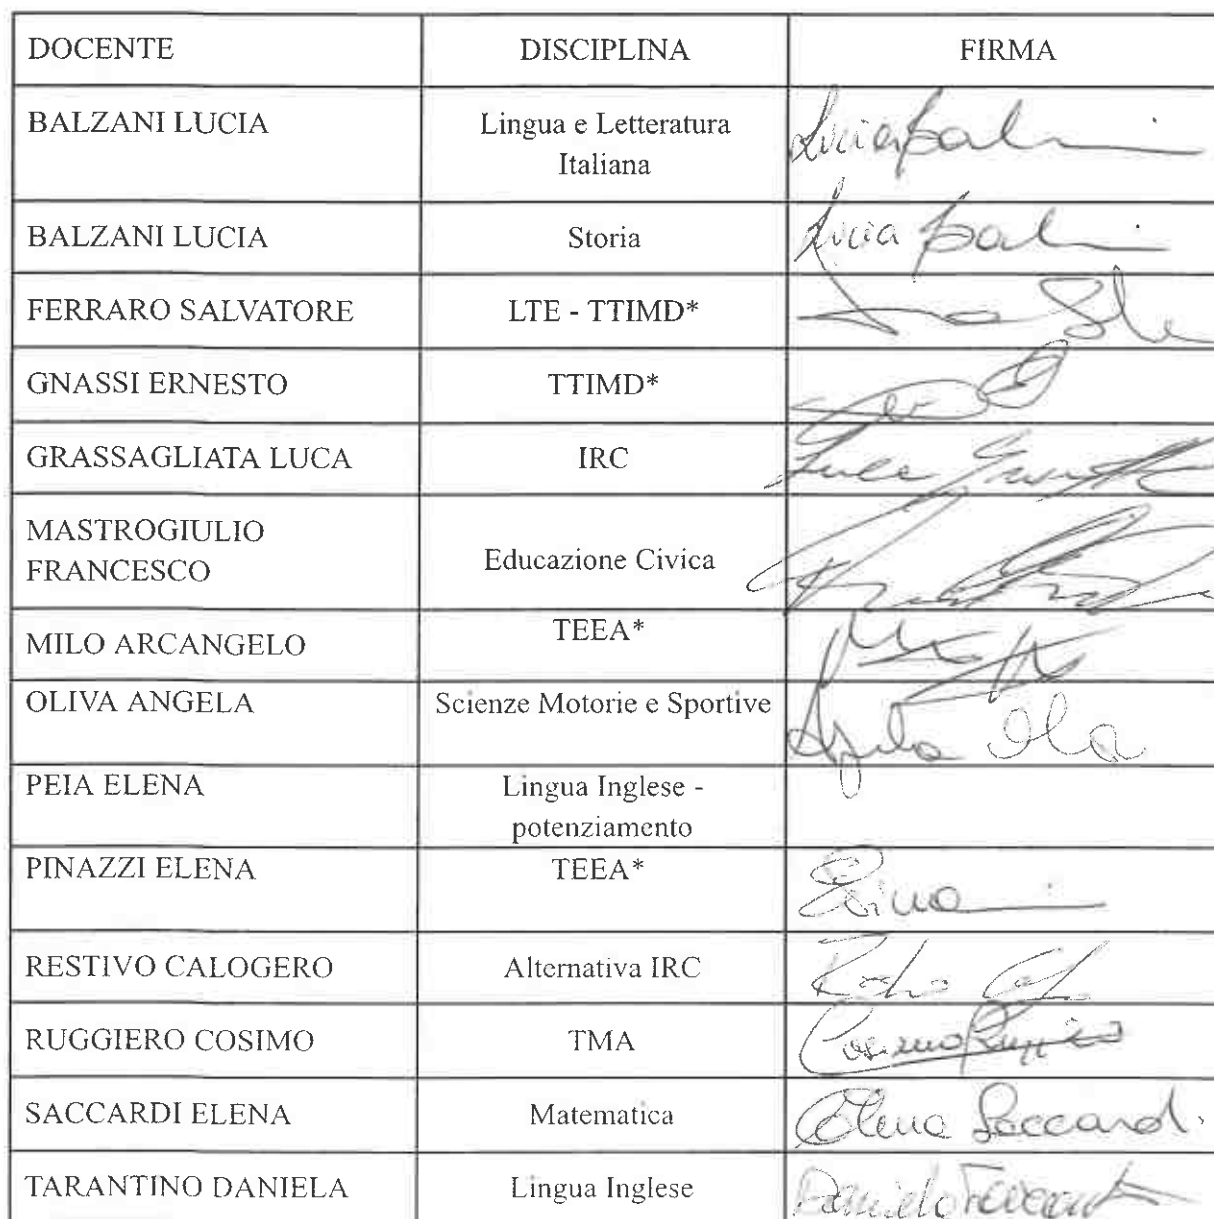 DOCENTE DISCIPLINA FIRMA
BALZANI LUCIA Lingua e Letteratura
Italiana
BALZANI LUCIA Storia Lucia
FERRARO SALVATORE LTE - TTIMD*
GNASSI ERNESTO TTIMD*
GRASSAGLIATA LUCA IRC Luca
MASTROGIULIO
FRANCESCO Educazione Civica
MILO ARCANGELO TEEA*
OLIVA ANGELA Scienze Motorie e Sportive Angela
PEIA ELENA Lingua Inglese -
potenziamento
PINAZZI ELENA TEEA*
RESTIVO CALOGERO Alternativa IRC
RUGGIERO COSIMO TMA Cosimo Ruggiero
SACCARDI ELENA Matematica Elena Saccardi
TARANTINO DANIELA Lingua Inglese Daniela